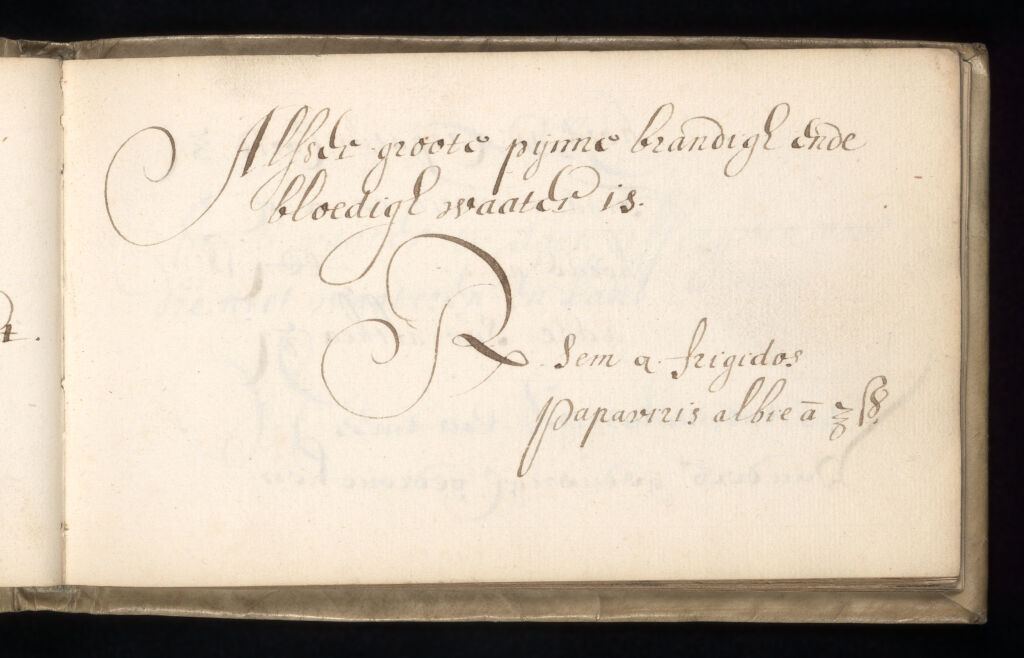 Alsser groote pynne brandigh ende
bloedigh waater is.
℞. Sem 4 frigidos
Papaveris albie ā ℥ ß.
4.